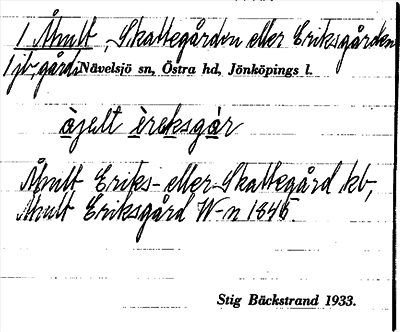 1 Åhult, Skattegården eller Eriksgården
1 jb, gård, Nävelsjö sn, Östra hd, Jönköpings l.
àjult èreksgàr
Åhult Eriks- eller Skattegård kb,
Åhult Eriksgård W-n 1845.
Stig Bäckstrand 1933.